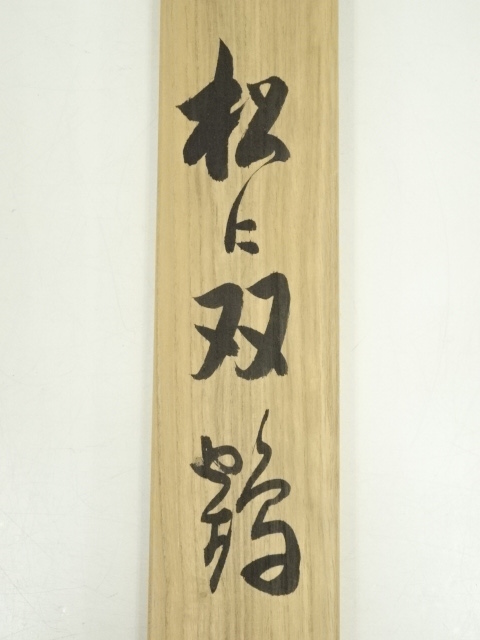 松に双鶴